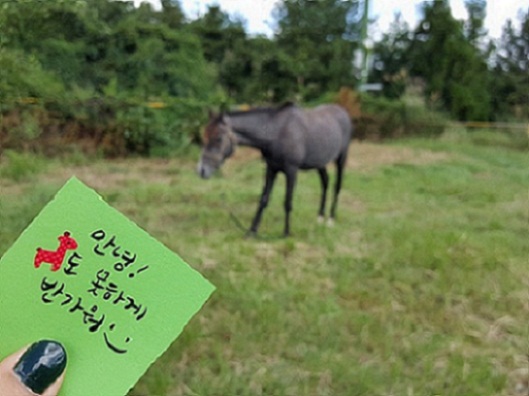 안녕!
도 못하게
반가워